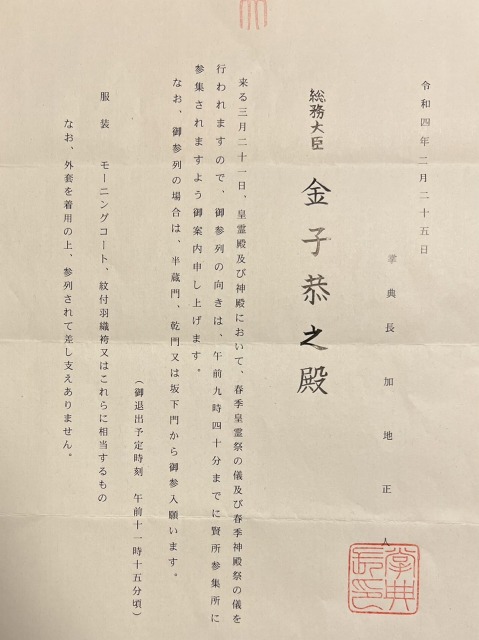 令和四年二月二十五日
掌典長 加地正人
掌典長印
総務大臣 金子恭之殿
来る三月二十一日、皇霊殿及び神殿において、春季皇霊祭の儀及び春季神殿祭の儀を
行われますので、御参列の向きは、午前九時四十分までに賢所参集所に
参集されますよう御案内申し上げます。
なお、御参列の場合は、半蔵門、乾門又は坂下門から御参入願います。
(御退出予定時刻 午前十一時十五分頃)
服装 モーニングコート、紋付羽織袴又はこれらに相当するもの
なお、外套を着用の上、参列されて差し支えありません。